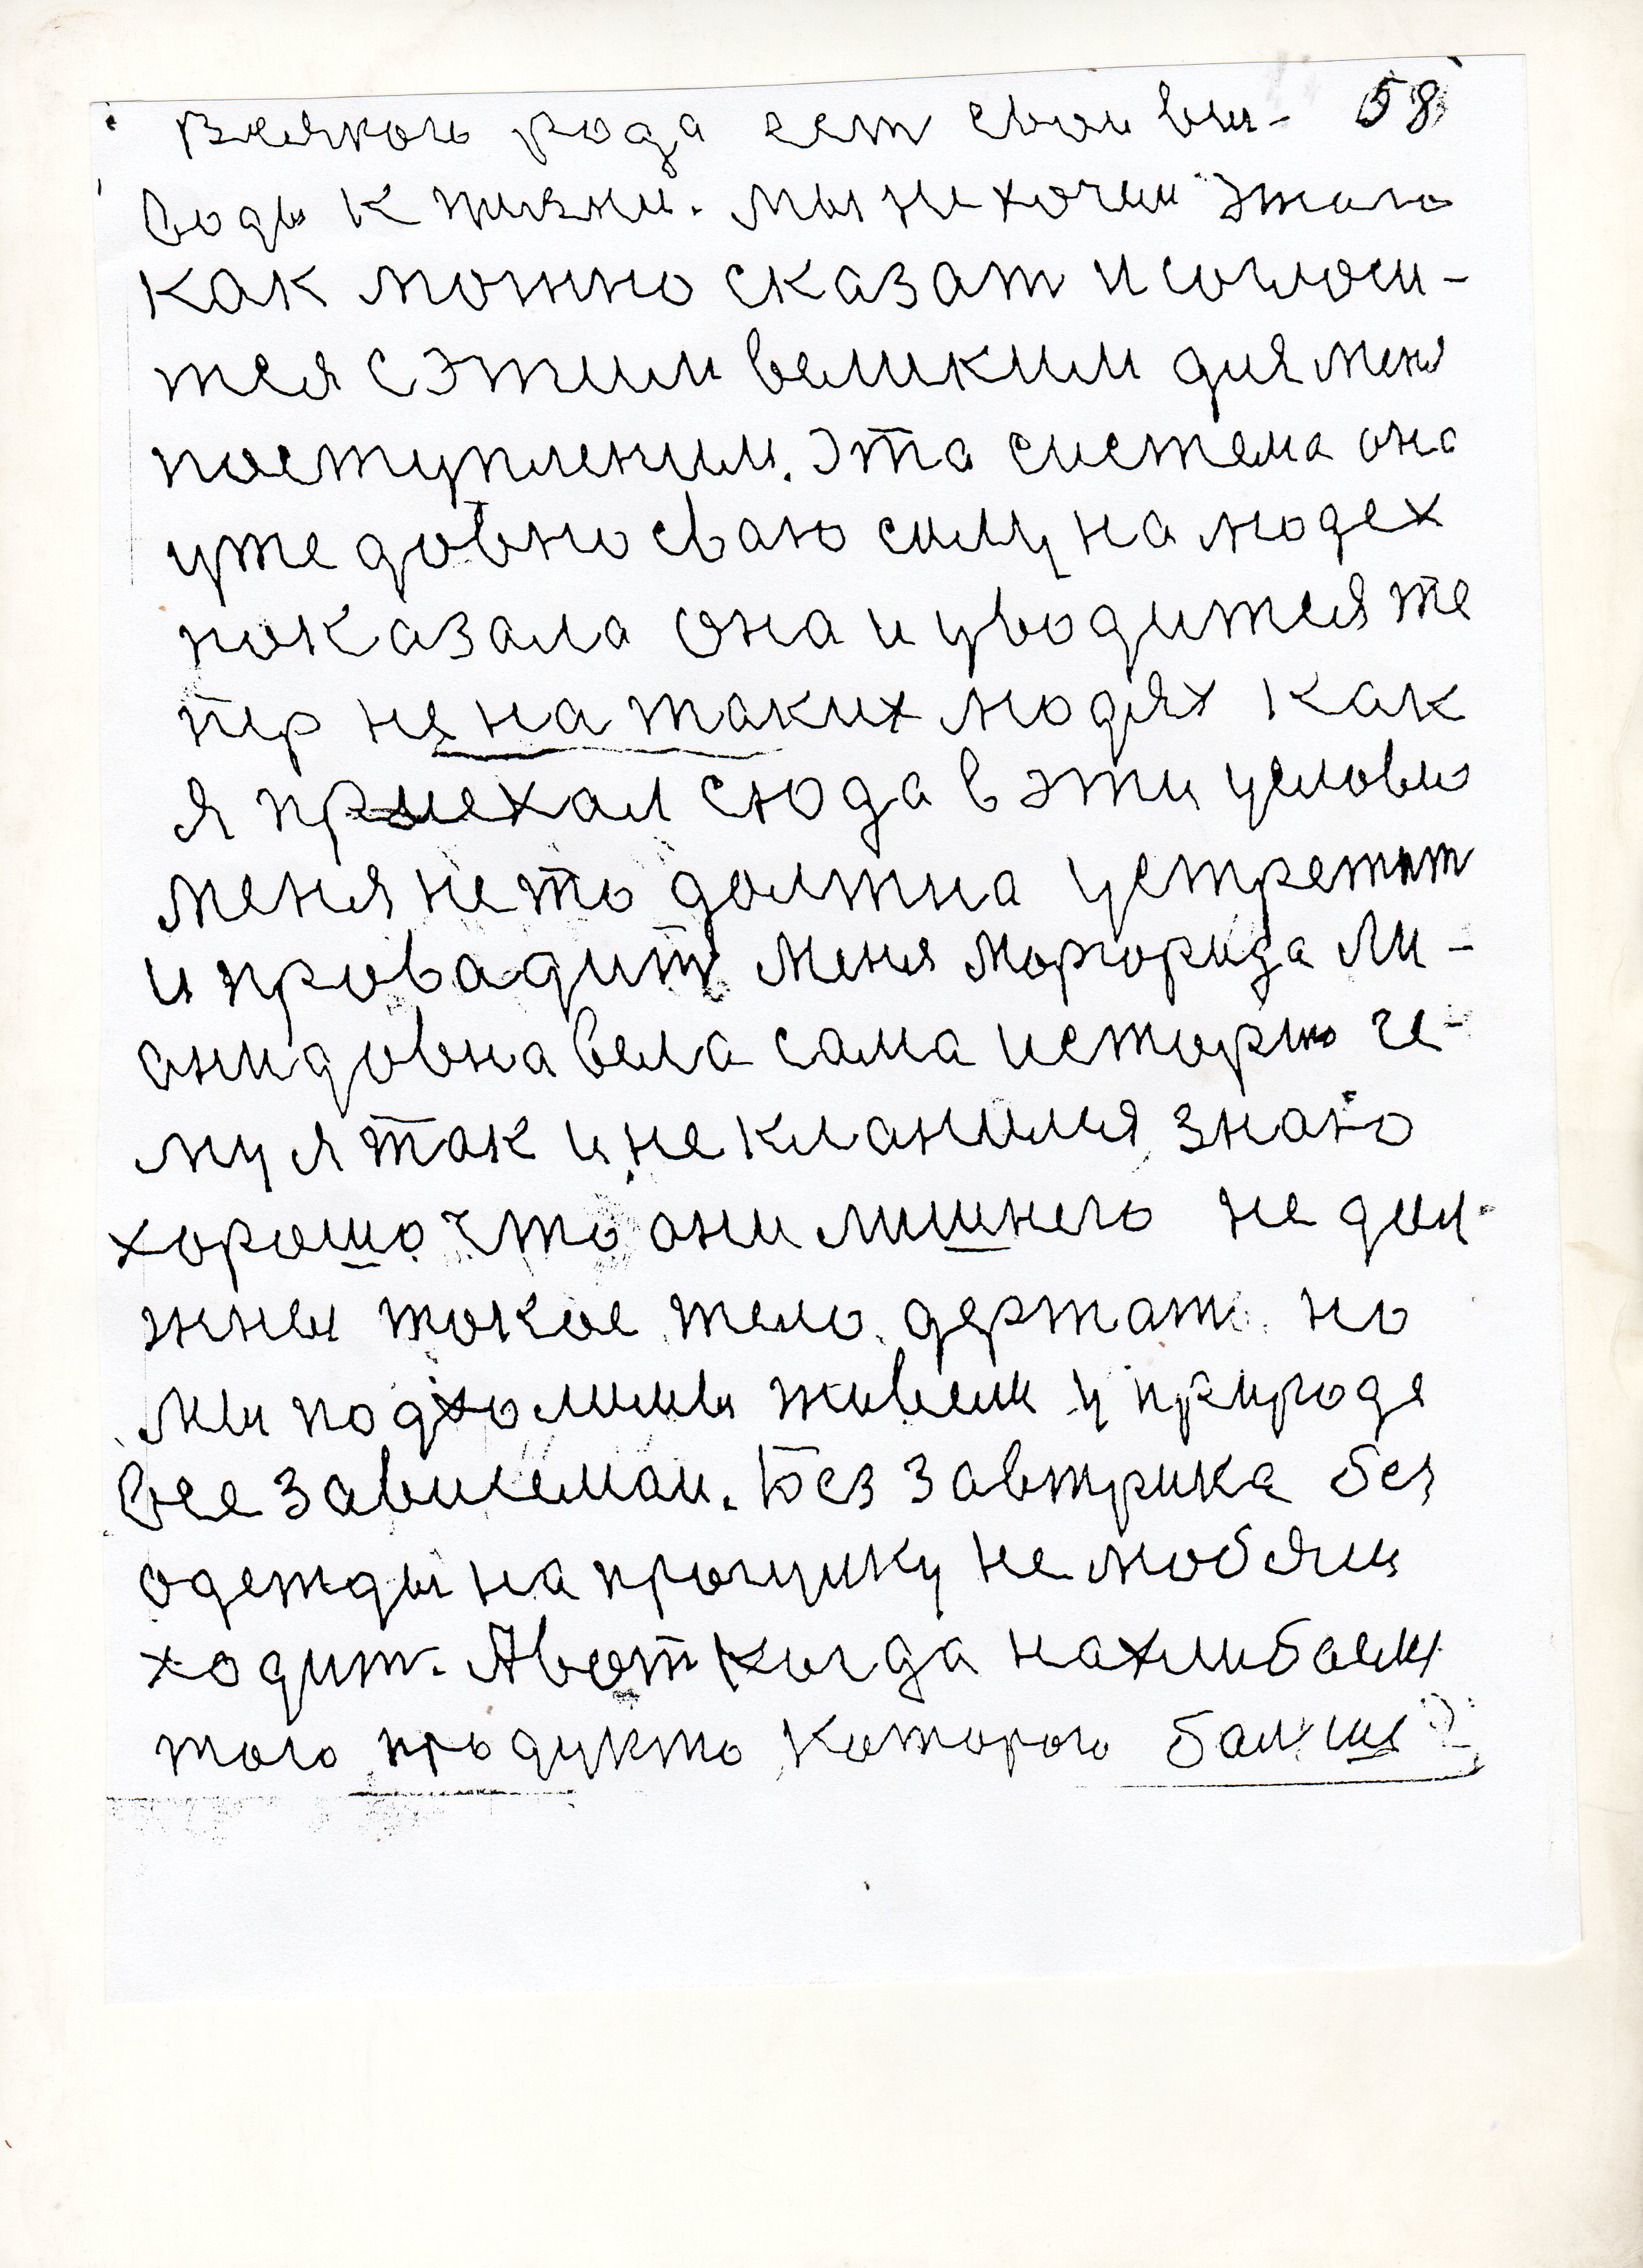 Всякого рода ест свои вы- 58
воды к жизни. мы не хочим этого
как можно сказат и согласи-
тся с этим великим для меня
поступлением. Эта система она
уже давно сваю силу на людех
показала она и уводится те
пр не на таких людях как
я приехал сюда в эти условю
меня не то должна устретит
и провадит меня Моргорида Ли-
анидовна вела сама исторію че-
му я так и не кланился знаю
хорошо что они лишнего не дол-
жны такое тело держат но
мы подхолимы живем у природе
все зависемаи. Без завтрика без
одежды на прогулку не любяш
ходит. А вот когда нахлибаеш
того продукто каторого балше